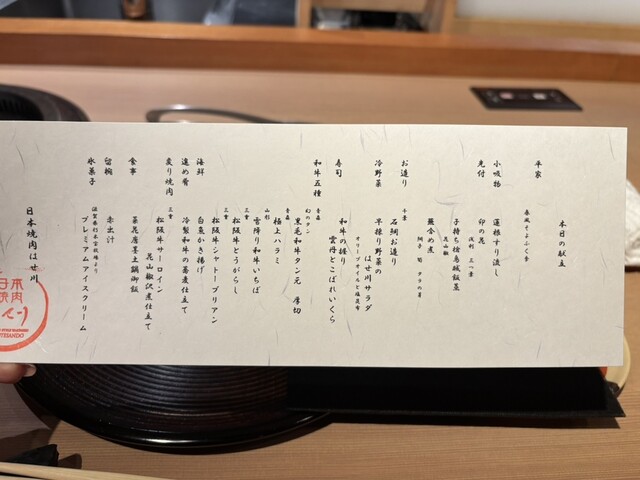 本日の献立
平家
春風そよふく季
小吸物 蓮根すり流し
先付 卯の花
浅利 三つ葉
子持ち槍烏賊飯蒸
花山椒
鰻含め煮
お造り
千葉
石鯛お造り
冷野菜 早採り野菜の
はせ川サラダ
オリーブオイルと塩昆布
寿司 和牛の握り
雲丹とこぼれいくら
和牛五種
青森
幻のタン
黒毛和牛タン元 厚切
青森
極上ハラミ
山形
雪降り和牛いちぼ
三重
松阪牛とうがらし
三重
松阪牛シャトーブリアン
海鮮 白魚かき揚げ
進め肴 冷製和牛の蕎麦仕立て
炙り焼肉
三重
松阪牛サーロイン
花山椒沢煮仕立て
食事 菜花唐墨土鍋御飯
留椀 赤出汁
氷菓子
プレミアムアイスクリーム
日本焼肉はせ川
日本
焼肉